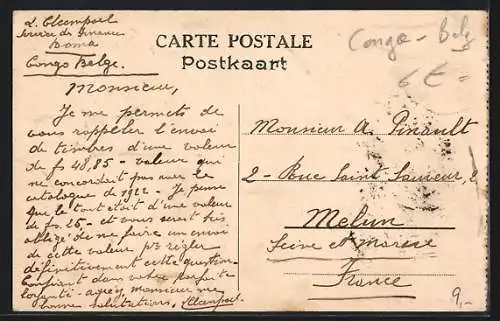 Service des Finances
Boma
Congo Belge.
CARTE POSTALE
Postkaart
Congo - Belg
6 € =
Monsieur,
Je me permets de
vous rappeler l'envoi
de timbres d'une valeur
de frs 48,85 - valeur qui
ne concordait pas avec le
catalogue de 1922 - Je pense
que le tout était d'une valeur
de frs. 25 - et vous serais très
obligé de me faire un envoi
de cette valeur pr régler
définitivement cette question.
Confiant dans votre parfaite
loyauté - agréez monsieur mes
bonnes salutations.
Monsieur A. Pinault
2 - Rue Saint Sauveur, 2
Melun
Seine et Marne
France
9,-